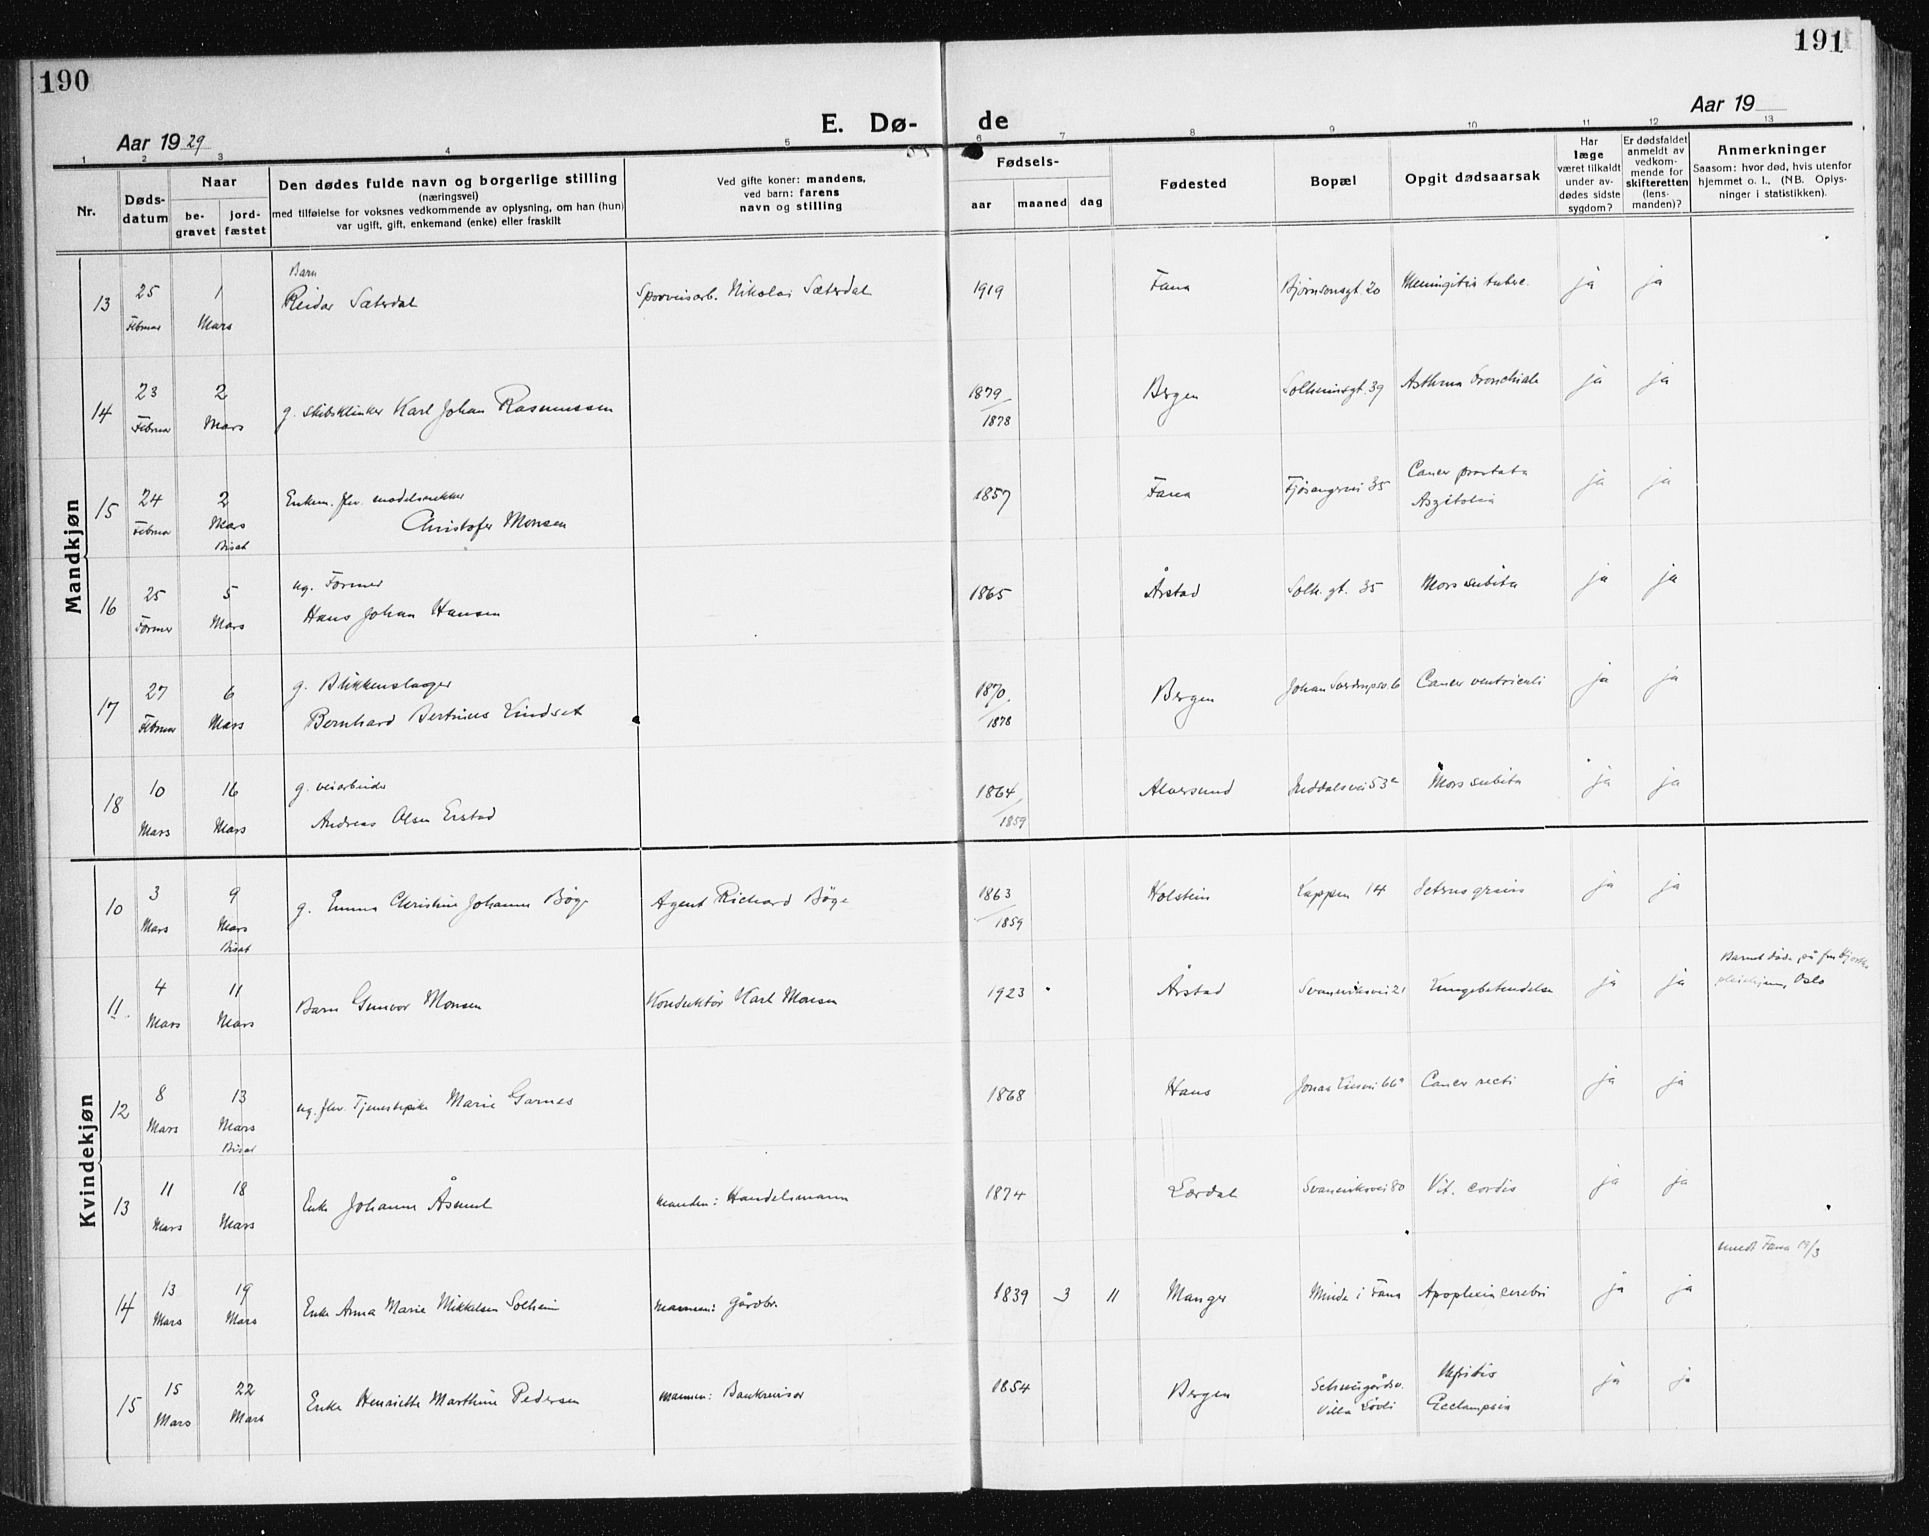 190
191
Aar 1929
E. Dø-
de
Aar 19
1 2 3 4 5 6 7 8 9 10 11 12 13
Nr.
Døds-
datum
Naar
be-
gravet
jord-
fæstet
Den dødes fulde navn og borgerlige stilling
(næringsvei)
med tilføielse for voksnes vedkommende av oplysning, om han (hun)
var ugift, gift, enkemand (enke) eller fraskilt
Ved gifte koner: mandens,
ved barn: farens
navn og stilling
Fødsels-
aar maaned dag
Fødested
Bopæl
Opgit dødsaarsak
Har
læge
været tilkaldt
under av-
dødes sidste
sygdom?
Er dødsfaldet
anmeldt av
vedkom-
mende for
skifteretten
(lens-
manden)?
Anmerkninger
Saasom: hvor død, hvis utenfor
hjemmet o. l., (NB. Oplys-
ninger i statistikken).
Mandkjøn
13 25 Februar 1 Mars Barn
Reidar Sæterdal Sporveisarb. Nikolai Sæterdal 1919 Fana Bjørnsonsgt. 20 Meningitis tuberc. ja ja
14 23 Februar 2 Mars g. skibsklinker Karl Johan Rasmussen 1879/1878 Bergen Solheimsgt. 39 Asthma bronchiale ja ja
15 24 Februar 2 Mars Bisat Enkem. fhv. modelsnekker
Christofer Monsen 1857 Fana Fjøsangervei 35 Cancer prostata
ja ja
16 25 5 Mars ug. Former
Hans Johan Hansen 1865 Årstad Solh. gt. 35 Mors subita ja ja
17 27 Februar 6 Mars g. Blikkenslager
Bernhard Bertinius Lindset 1870/1878 Bergen Johan Sverdrupsv. 6 Cancer ventriculi ja ja
18 10 Mars 16 Mars g. veiarbeider
Andreas Olsen Erstad 1864/1859 Alversund 53a Mors subita ja ja
Kvindekjøn
10 3 Mars 9 Mars Bisat g. Emma Christine Johanne Bøge Agent Richard Bøge 1863/1859 Holstein 14 ja ja
11 4 Mars 11 Mars Barn Gunvor Monsen Konduktør Karl Monsen 1923 Årstad Svaneviksvei 21 Lungebetendelse ja ja Barnet døde på
Oslo
12 8 Mars 13 Mars Bisat ug. fhv. Tjenestepike Marie Garnes 1868 Haus Jonas Liesvei 66a Cancer recti ja ja
13 11 Mars 18 Mars Enke Johanne Manden: Handelsmann 1874 Lærdal Svaneviksvei 80 Vit. cordis ja ja
14 13 Mars 19 Mars Enke Anna Marie Mikkelsen Solheim Mannen: Gårdbr. 1839 3 11 Manger Minde i Fana Apoplexia cerebri ja ja Fana 19/3
15 15 Mars 22 Mars Enke Henriette Marthine Pedersen Mannen: Bankrevisor 1854 Bergen Schweigårdsv.
Villa Løvli Nefritis
Ecclampsia ja ja